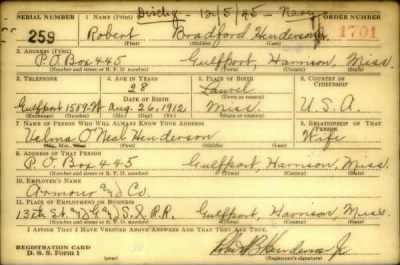 Dischg - 12/5/45 - Navy
SERIAL NUMBER 1. NAME (Print) ORDER NUMBER
259 Robert Bradford Henderson Jr. 1701
(First) (Middle) (Last)
2. ADDRESS (Print)
P.O. Box 445 Gulfport, Harrison, Miss.
(Number and street or R. F. D. number) (Town) (County) (State)
3. TELEPHONE 4. AGE IN YEARS 5. PLACE OF BIRTH 6. COUNTRY OF CITIZENSHIP
28 Laurel
DATE OF BIRTH (Town or county)
Gulfport 1589-W Aug. 26, 1912 Miss. U.S.A.
(Exchange) (Number) (Mo.) (Day) (Yr.) (State or country)
7. NAME OF PERSON WHO WILL ALWAYS KNOW YOUR ADDRESS 8. RELATIONSHIP OF THAT PERSON
Velma O'Neal Henderson Wife
(Mr., Mrs., Miss) (First) (Middle) (Last)
9. ADDRESS OF THAT PERSON
P.O. Box 445 Gulfport, Harrison, Miss.
(Number and street or R. F. D. number) (Town) (County) (State)
10. EMPLOYER'S NAME
Armour & Co
11. PLACE OF EMPLOYMENT OR BUSINESS
13th St. & G. & S. I. R.R. Gulfport, Harrison, Miss.
(Number and street or R. F. D. number) (Town) (County) (State)
I AFFIRM THAT I HAVE VERIFIED ABOVE ANSWERS AND THAT THEY ARE TRUE.
REGISTRATION CARD
D. S. S. Form 1 Robt B Henderson Jr
(Registrant's signature)